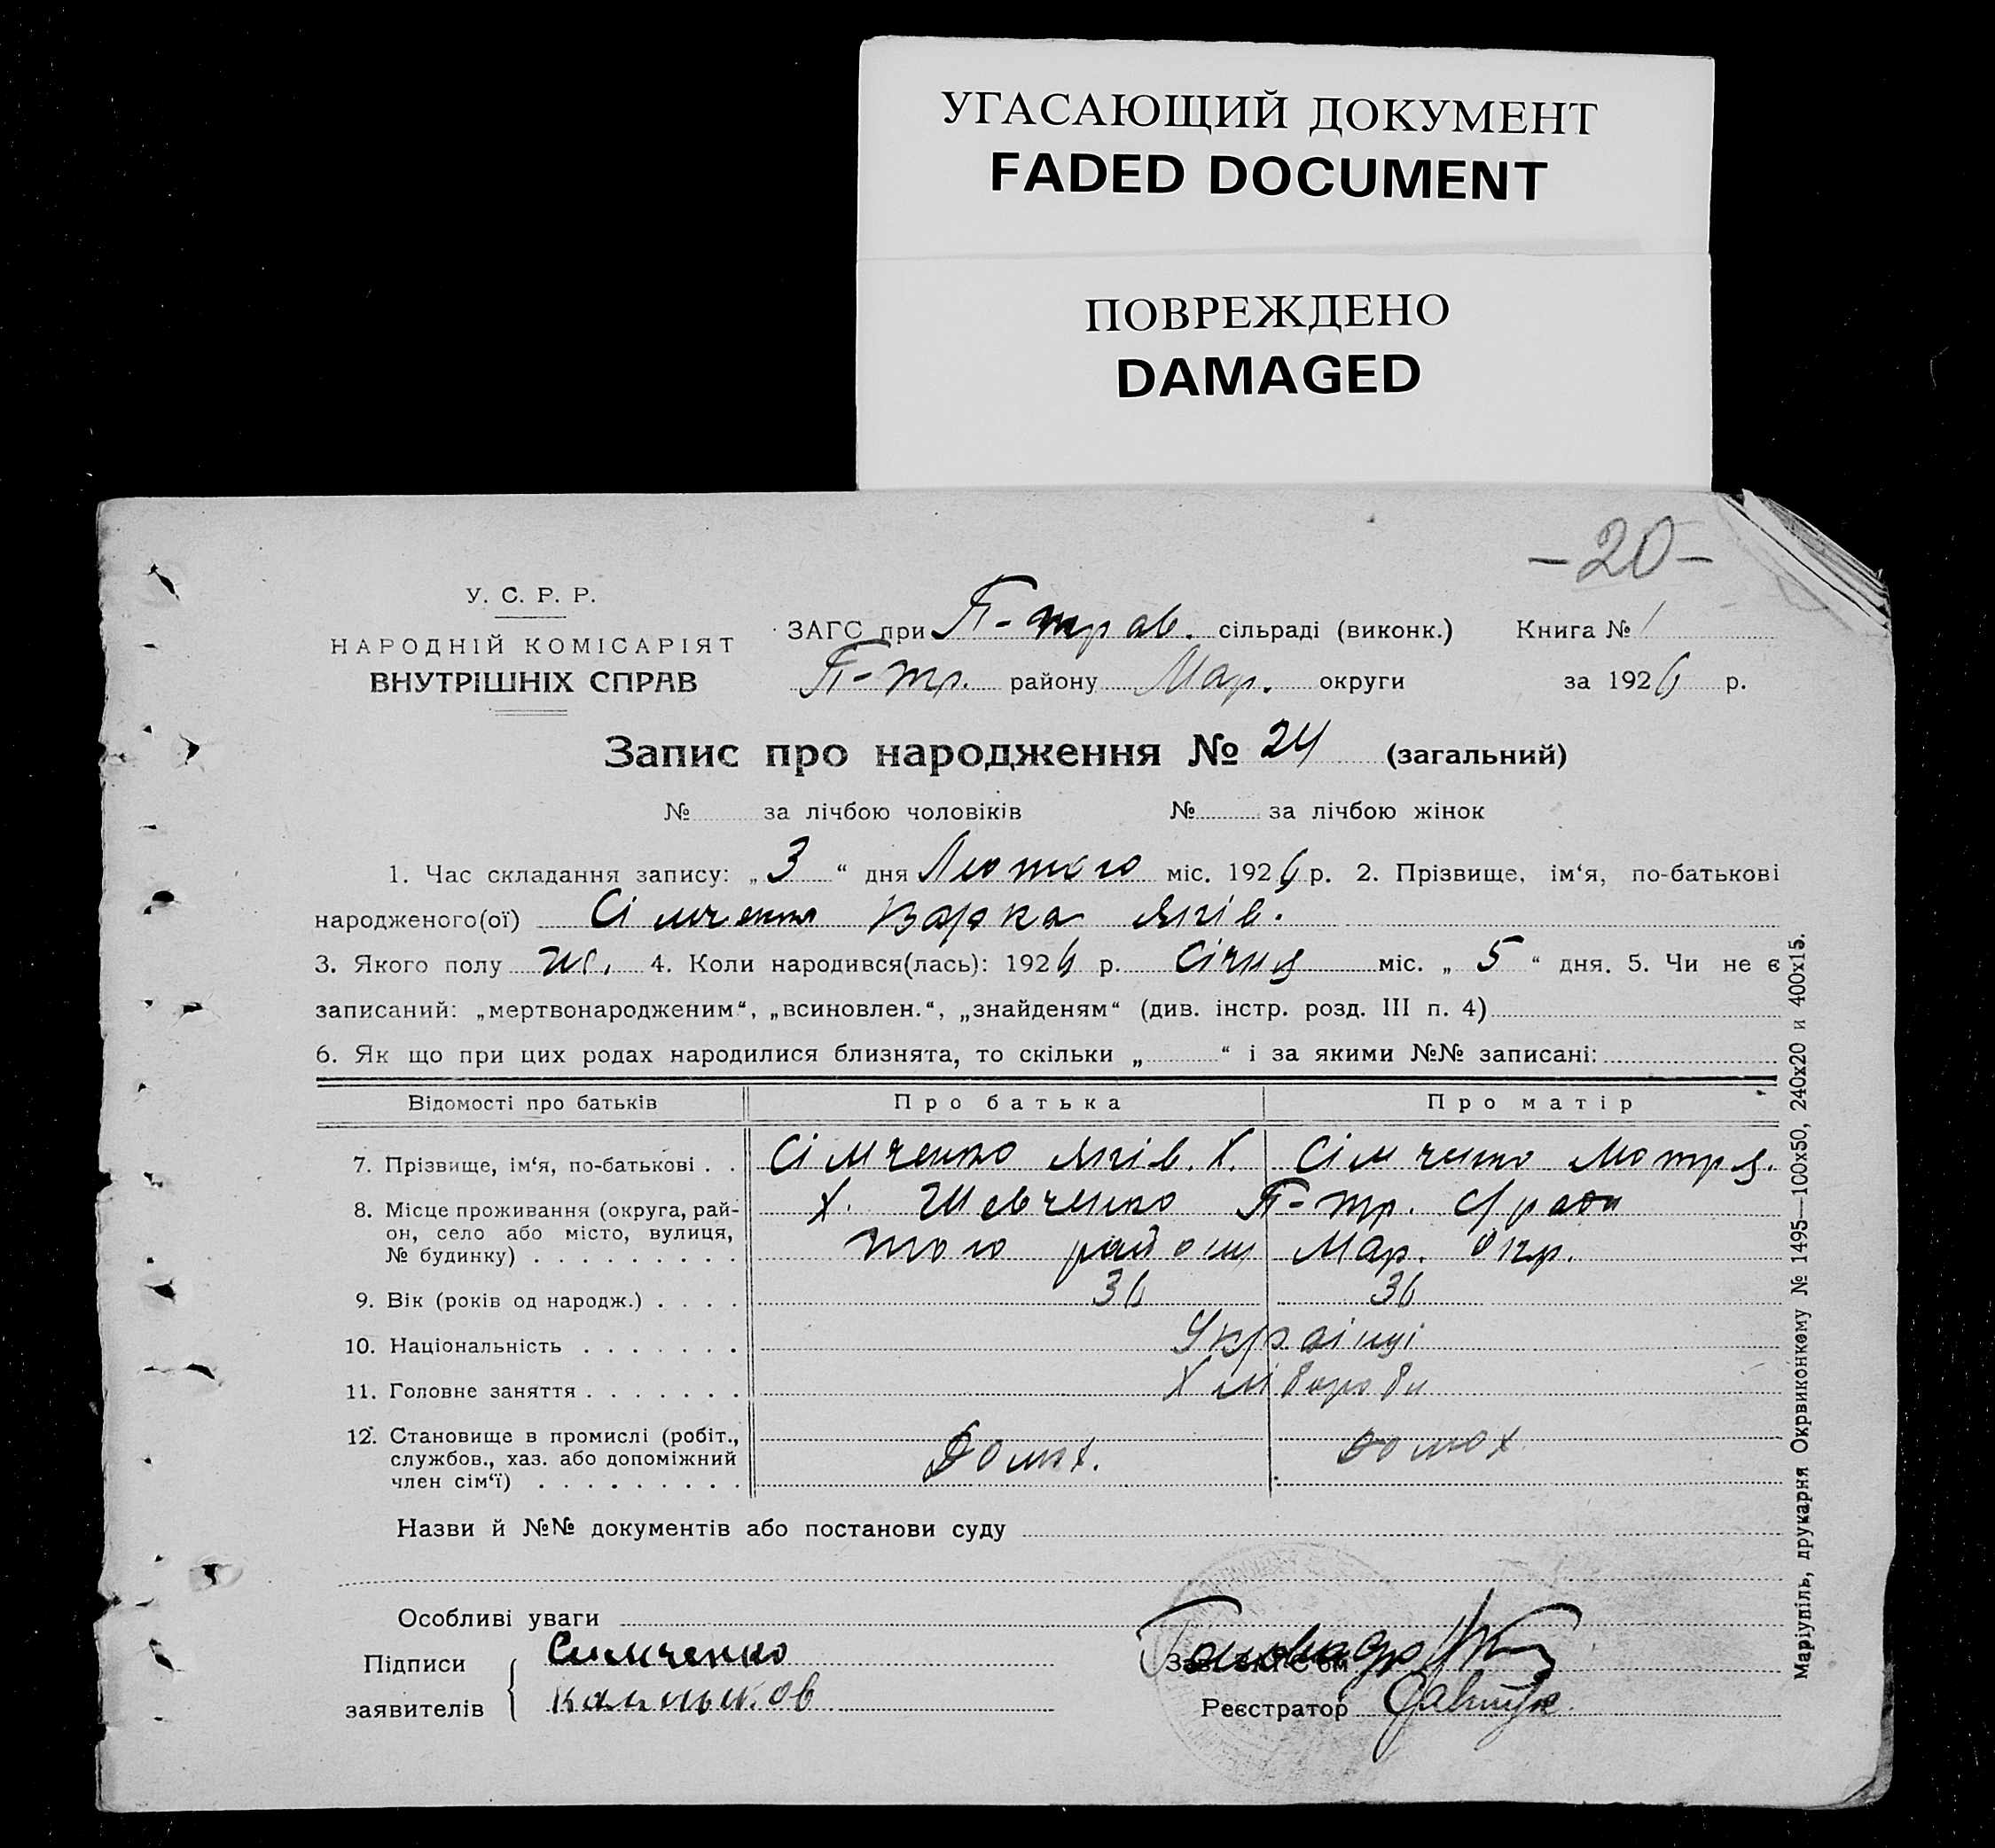 УГАСАЮЩИЙ ДОКУМЕНТ
FADED DOCUMENT
ПОВРЕЖДЕНО
DAMAGED
-20-
У. С. Р. Р.
НАРОДНІЙ КОМІСАРІЯТ
ВНУТРІШНІХ СПРАВ
ЗАГС при П-тров. сільраді (виконк.) Книга № 1
П-тр. району Мар. округи за 1926 р.
Запис про народження № 24 (загальний)
№ за лічбою чоловіків № за лічбою жінок
1. Час складання запису: „3“ дня Лютого міс. 1926 р. 2. Прізвище, ім‘я, по-батькові
народженого(ої) Сімченко Варка Яків.
3. Якого полу ж. 4. Коли народився(лась): 1926 р. Січня міс. „5“ дня. 5. Чи не є
записаний: „мертвонародженим“, „всиновлен.“, „знайденям“ (див. інстр. розд. III п. 4)
6. Як що при цих родах народилися близнята, то скільки „ “ і за якими №№ записані:
Відомості про батьків Про батька Про матір
7. Прізвище, ім‘я, по-батькові . . Сімченко Яків. Х. Сімченко Мотря.
8. Місце проживання (округа, рай- Х. Шевченко П-тр. с/ради
он, село або місто, вулиця,
№ будинку) . . . . . . . . . того району Мар. Окр.
9. Вік (років од народж.) . . . . 36 36
10. Національність . . . . . . . Українці
11. Головне заняття . . . . . . . Хлібороби
12. Становище в промислі (робіт.,
службов., хаз. або допоміжний Домх. домох.
член сім‘ї) . . . . . . . . .
Назви й №№ документів або постанови суду
Особливі уваги
Підписи Симченко
заявителів Калмыков
Зав. ЗАГС‘ом
Реєстратор
Маріупіль, друкарня Окрвиконкому № 1495—100х50, 240х20 и 400х15.